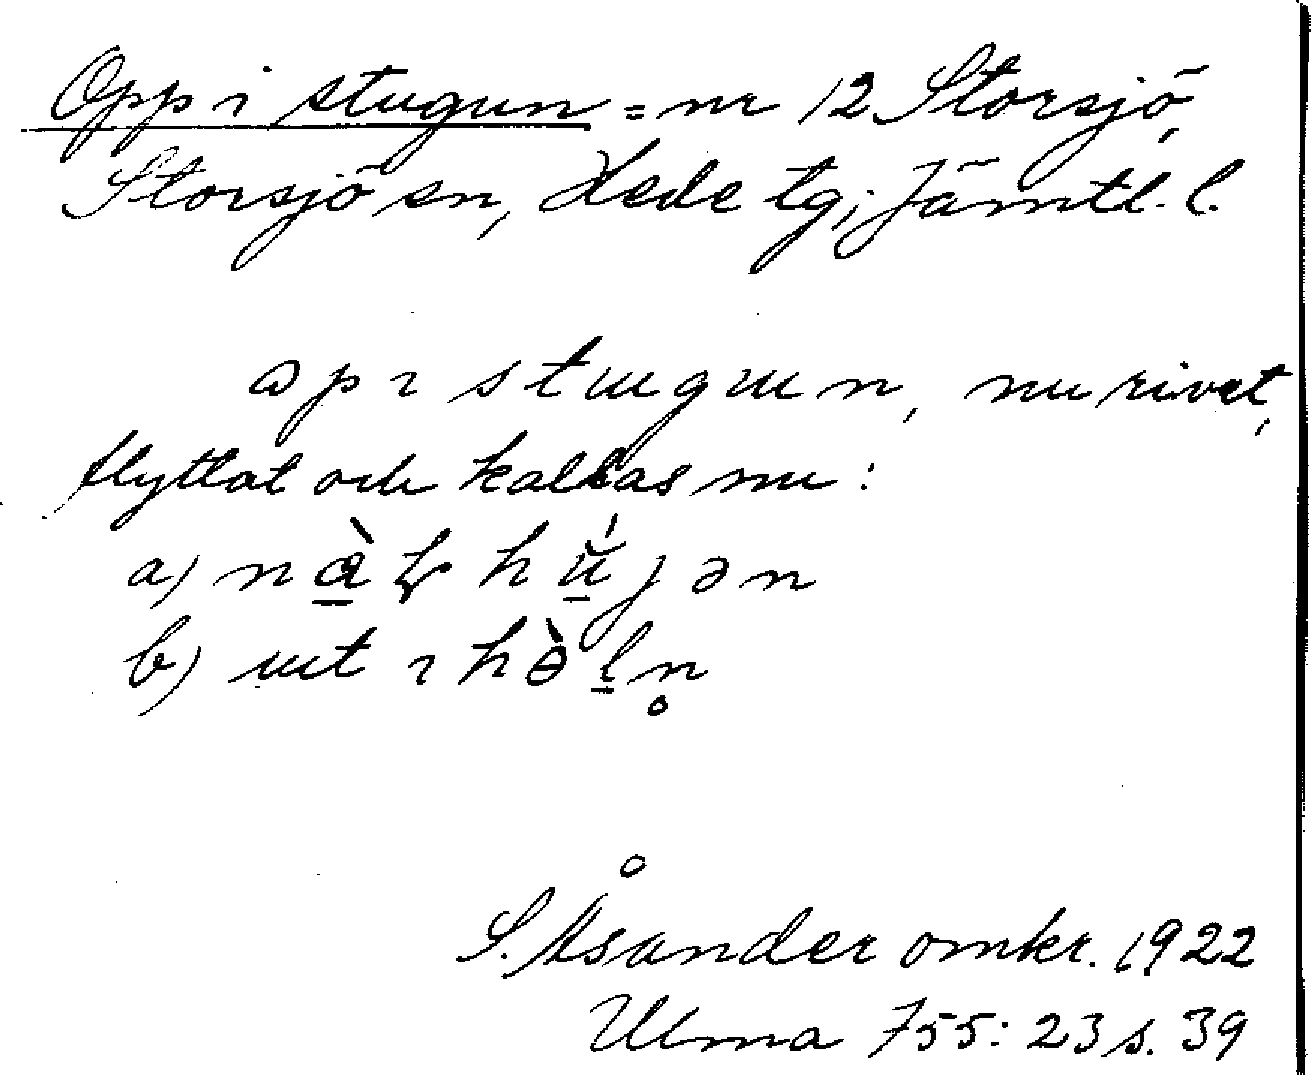 Opp i stugun = nr 12 Storsjö,
Storsjö sn, Hede tg; Jämtl. l.
opı stɯgɯn, nu rivet,
flyttat och kallas nu:
a)
b) ɯt ı hὲl̠n̥
S. Åsander omkr. 1922
Ulma 755: 23 s. 39